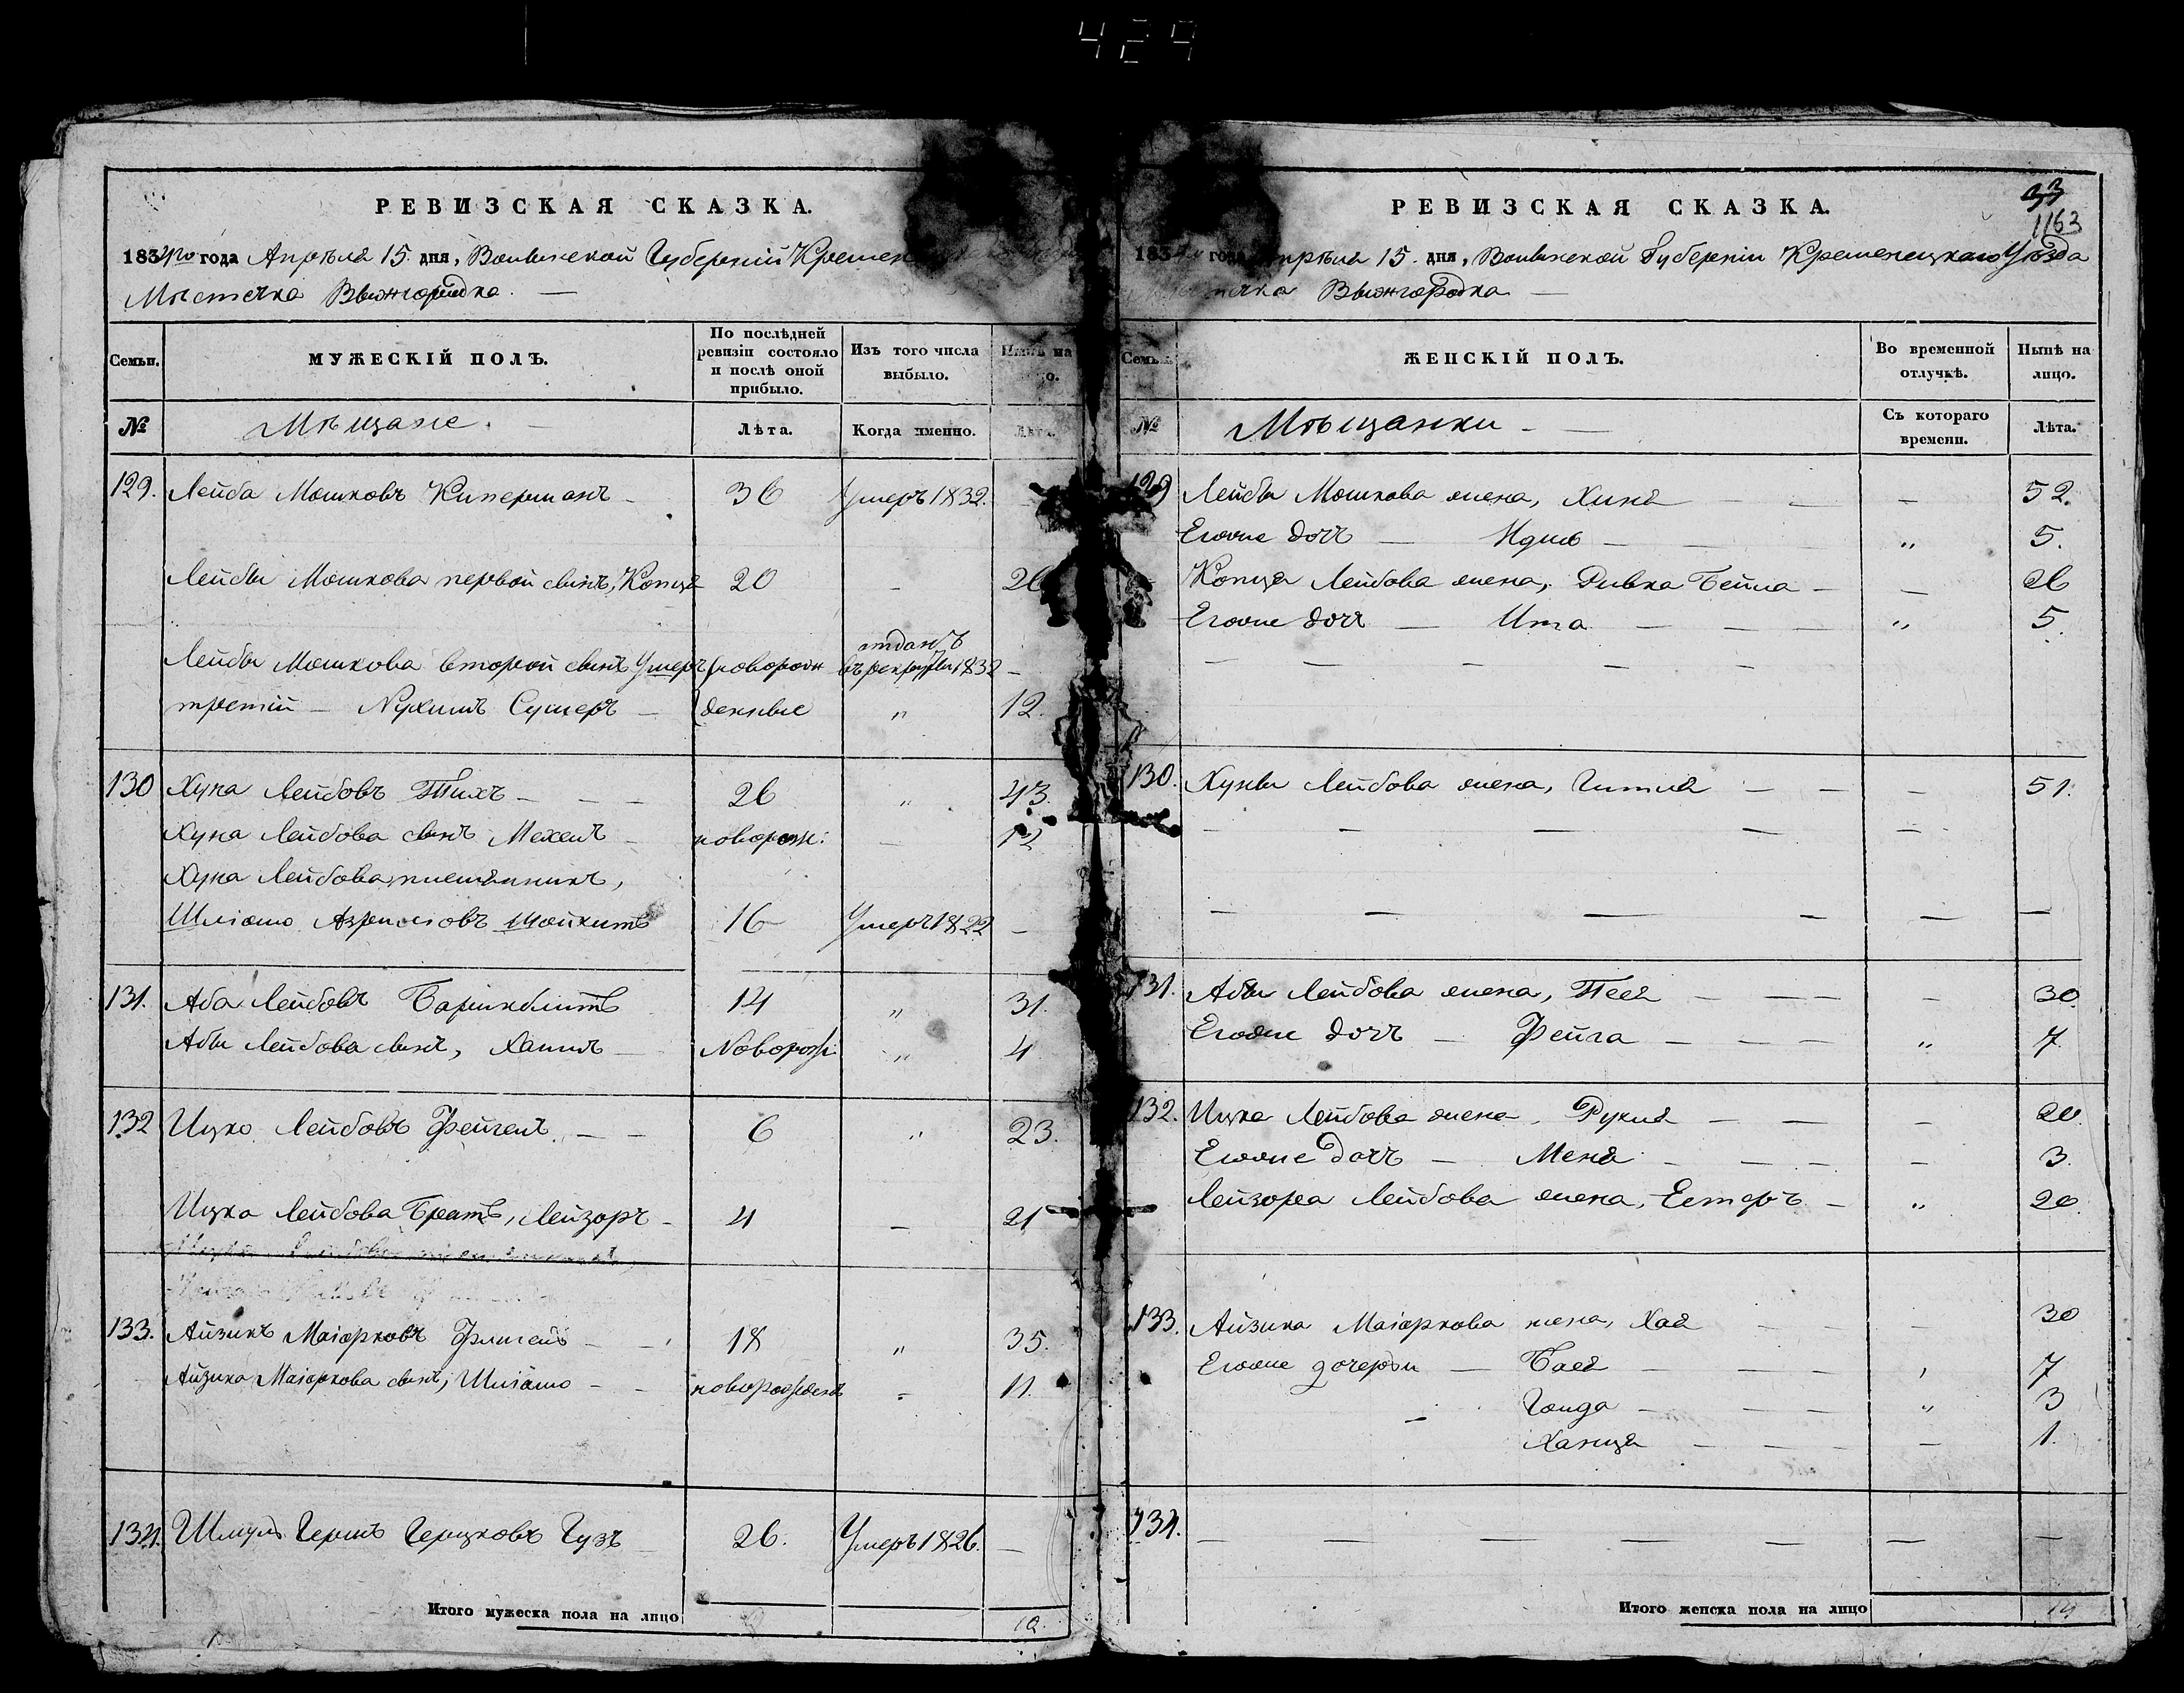 429
РЕВИЗСКАЯ СКАЗКА.
1834го года Апрѣля 15. дня, Волынской Губерніи Кременец
Мѣстечка Вышгородка. —
Семьи. МУЖЕСКІЙ ПОЛЪ. По послѣдней ревизіи состояло и послѣ оной прибыло. Изъ того числа выбыло. Нынѣ на
№ Мѣщане. Лѣта. Когда именно. Лѣта.
129. Лейба Мошковъ Киперманъ — 36 Умеръ 1832.
Лейбы Мошкова первой сынъ, Копця 20 — 26
отданъ
Лейбы Мошкова второй сынъ Умеръ новорож въ рекруты 1832 —
третій — Нухимъ Сумеръ — денные „ 12.
130 Хуна Лейбовъ Тихъ — — — 26 „ 43.
Хуна Лейбова сынъ Мехелъ — новорож: — 12
Хуна Лейбова племянникъ,
Шліомо Азриловъ 16 Умеръ 1822 —
131. Аба Лейбовъ 14 „ 31.
Абы Лейбова сынъ, Хаимъ — Новорож „ 4
132 Ицко Лейбовъ Фейгелъ — — 6 „ 23.
Ицка Лейбова Братъ, Лейзоръ — 4 — 21
133. Айзикъ Маіорковъ Флигель — — 18 „ 35.
Айзика Маіоркова сынъ, Шліомо — — новорожденъ — 11.
134. Шмуль Гершъ Герцковъ Гузъ 26. Умеръ 1826. —
Итого мужеска пола на лицо 10.
33
1163
РЕВИЗСКАЯ СКАЗКА.
1834 года Апрѣля 15. дня, Волынской Губерніи Кременецкаго Уѣзда
Вышгородка —
Семьи. ЖЕНСКІЙ ПОЛЪ. Во временной отлучкѣ. Нынѣ на лицо.
№ Мѣщанки — — Съ котораго времени. Лѣта.
129 Лейбы Мошкова жена, Хиня — — — 52.
Егоже дочь — Идись — — — „ 5.
Копця Лейбова жена, Ривка Бейла — — 26
Егоже дочь — Ита — — — „ 5.
130. Хуны Лейбова жена, Гитля — — — 51.
131. Абы Лейбова жена, Песя — — — — 30.
Егоже дочь — Фейга — — — „ 7.
132. Ицка Лейбова жена, Рухля — — — 20.
Егоже дочь — Меня — — — — 3.
Лейзора Лейбова жена, Естеръ — „ 20.
133. Айзика Маіоркова жена, Хая — — — 30
Егоже дочери — Бася — — — 7
— Голда — — — „ 3
Ханця — — — — 1.
134.
Итого женска пола на лицо 14